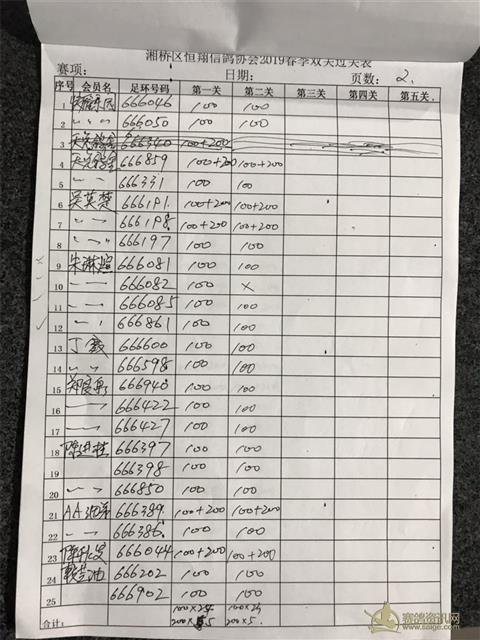 湘桥区恒翔信鸽协会2019春季双关过关表
赛项: 日期: 页数: 2.
序号 会员名 足环号码 第一关 第二关 第三关 第四关 第五关
1 666046 100 100
2 〃 〃 666050 100 100
3 666340 100+200
4 666859 100+200 100+200
5 〃 〃 666331 100 100
6 吴英楚 666191 100+200 100+200
7 〃 〃 666198 100+200 100+200
8 〃 〃 666197 100 100
9 朱琳 666081 100 100
10 〃 〃 666082 100 ×
11 〃 〃 666085 100 100
12 〃 〃 666861 100 100
13 丁 666600 100 100
14 〃 〃 666598 100 100
15 666940 100 100
16 〃 〃 666422 100 100
17 〃 〃 666427 100 100
18 666397 100 100
19 666398 100 100
20 〃 〃 666850 100 100
21 AA 666389 100+200 100+200
22 〃 〃 666386 100 100
23 666044 100+200 100+200
24 666202 100 100
25 666902 100 100
合计: 100×24 100×
200×5 200×5.
赛鸽资讯网
www.saige.com